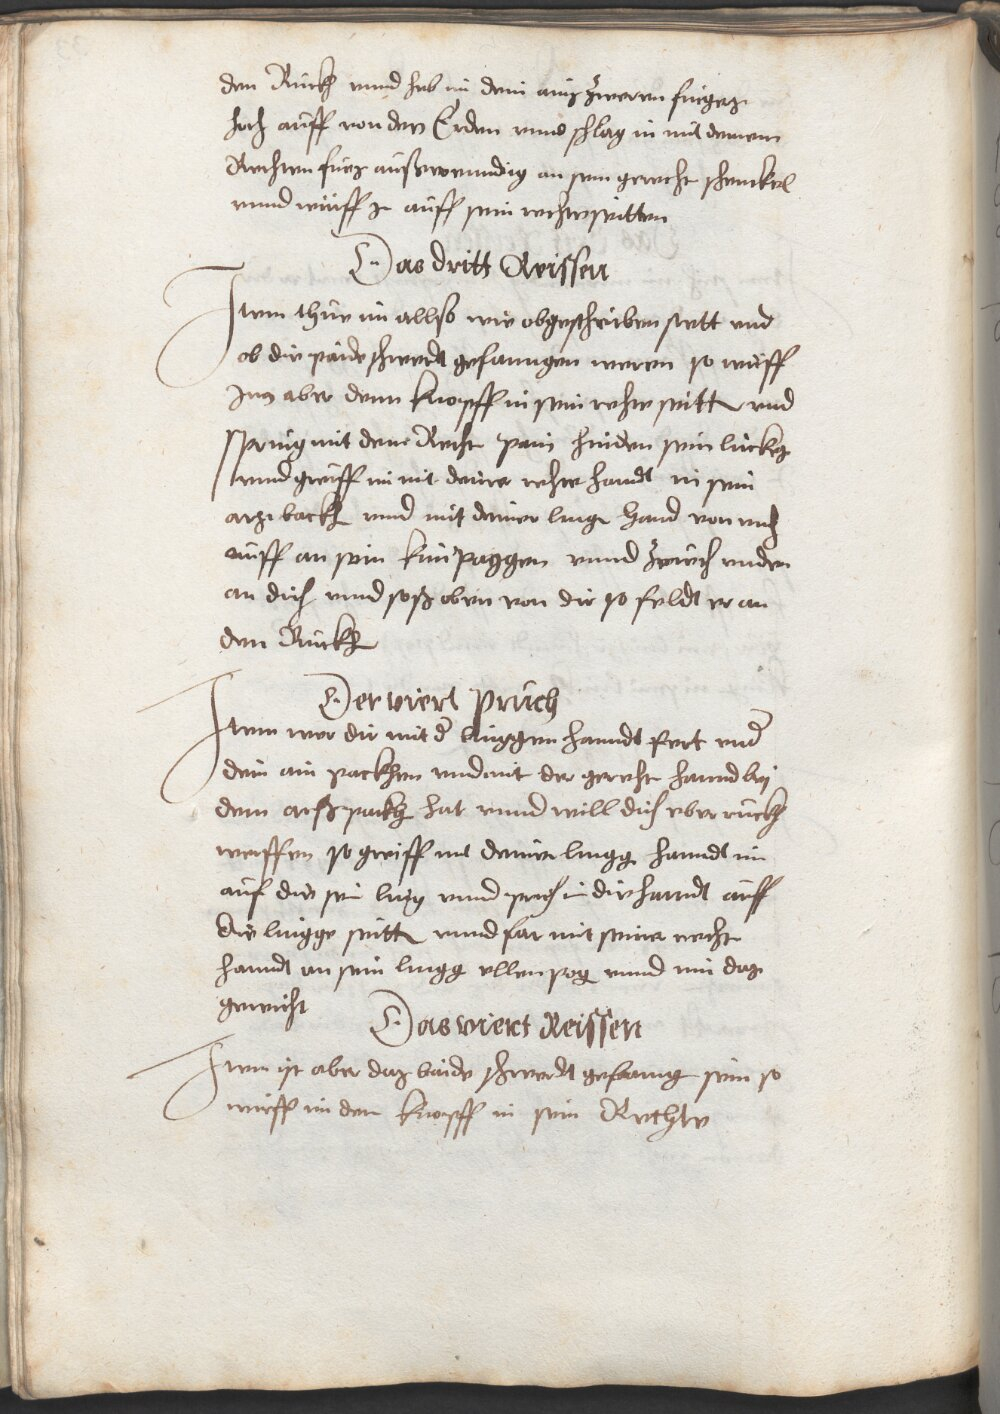 den Rück vnnd heb in dein ains zweren fingers
hoch auff von der Erden vnnd schlag in mit deinem
Rechten fües außwenndig an sein gerecht schenckel
vnnd würff in auff sein rechte seitten
Das dritt Reissen
Item thüe im allso wie obgeschriben stett vnd
ob die paide schwerdt gefanngen weren so würff
Im aber denn knopff in sein rechte seitt vnd
spring mit dem Recht pain hinden sein lincks
vnnd greiff im mit deiner rechte hanndt in sein
arsz backh vnnd mit deiner linge hand von
auff an sein kün paggen vnnd zeüch vnden
an dich vnnd stoß oben von dir so feldt er an
den Rückh
Der viert Prüch
Item wer dir mit der linggen hanndt fert vnder
dein ain packhen vnd mit der gerecht hannd bei
dem arßpackh hat vnnd will dich vber rückh
werffen so greiff mit deiner lingg hanndt im
auf die sein ling vnnd prich im die hanndt auff
die lingge seitt vnnd far mit deiner recht
hanndt an sein lingg ellenpog vnnd nim daz
gewicht
Das viert Reissen
Item ist aber daz baide schwerdt gefanng sein so
würff im den knopff in sein Rechte